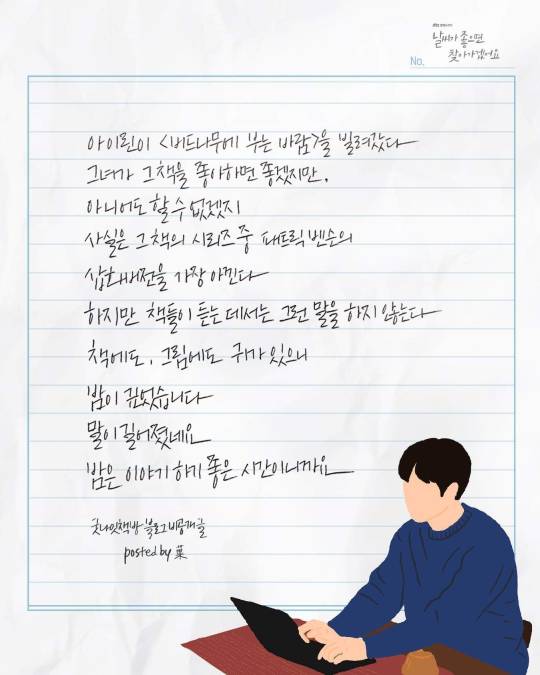 날씨가 좋으면
찾아가겠어요
No.
아이린이 <버드나무에 부는 바람>을 빌려갔다
그녀가 그 책을 좋아하면 좋겠지만,
아니어도 할 수 없겠지
사실은 그 책의 시리즈 중 패트릭 벤슨의
삽화버전을 가장 아낀다
하지만 책들이 듣는 데서는 그런 말을 하지 않는다
책에도, 그림에도 귀가 있으니
밤이 깊었습니다
말이 길어졌네요
밤은 이야기 하기 좋은 시간이니까요
굿나잇책방 블로그 비공개 글
posted by 葉